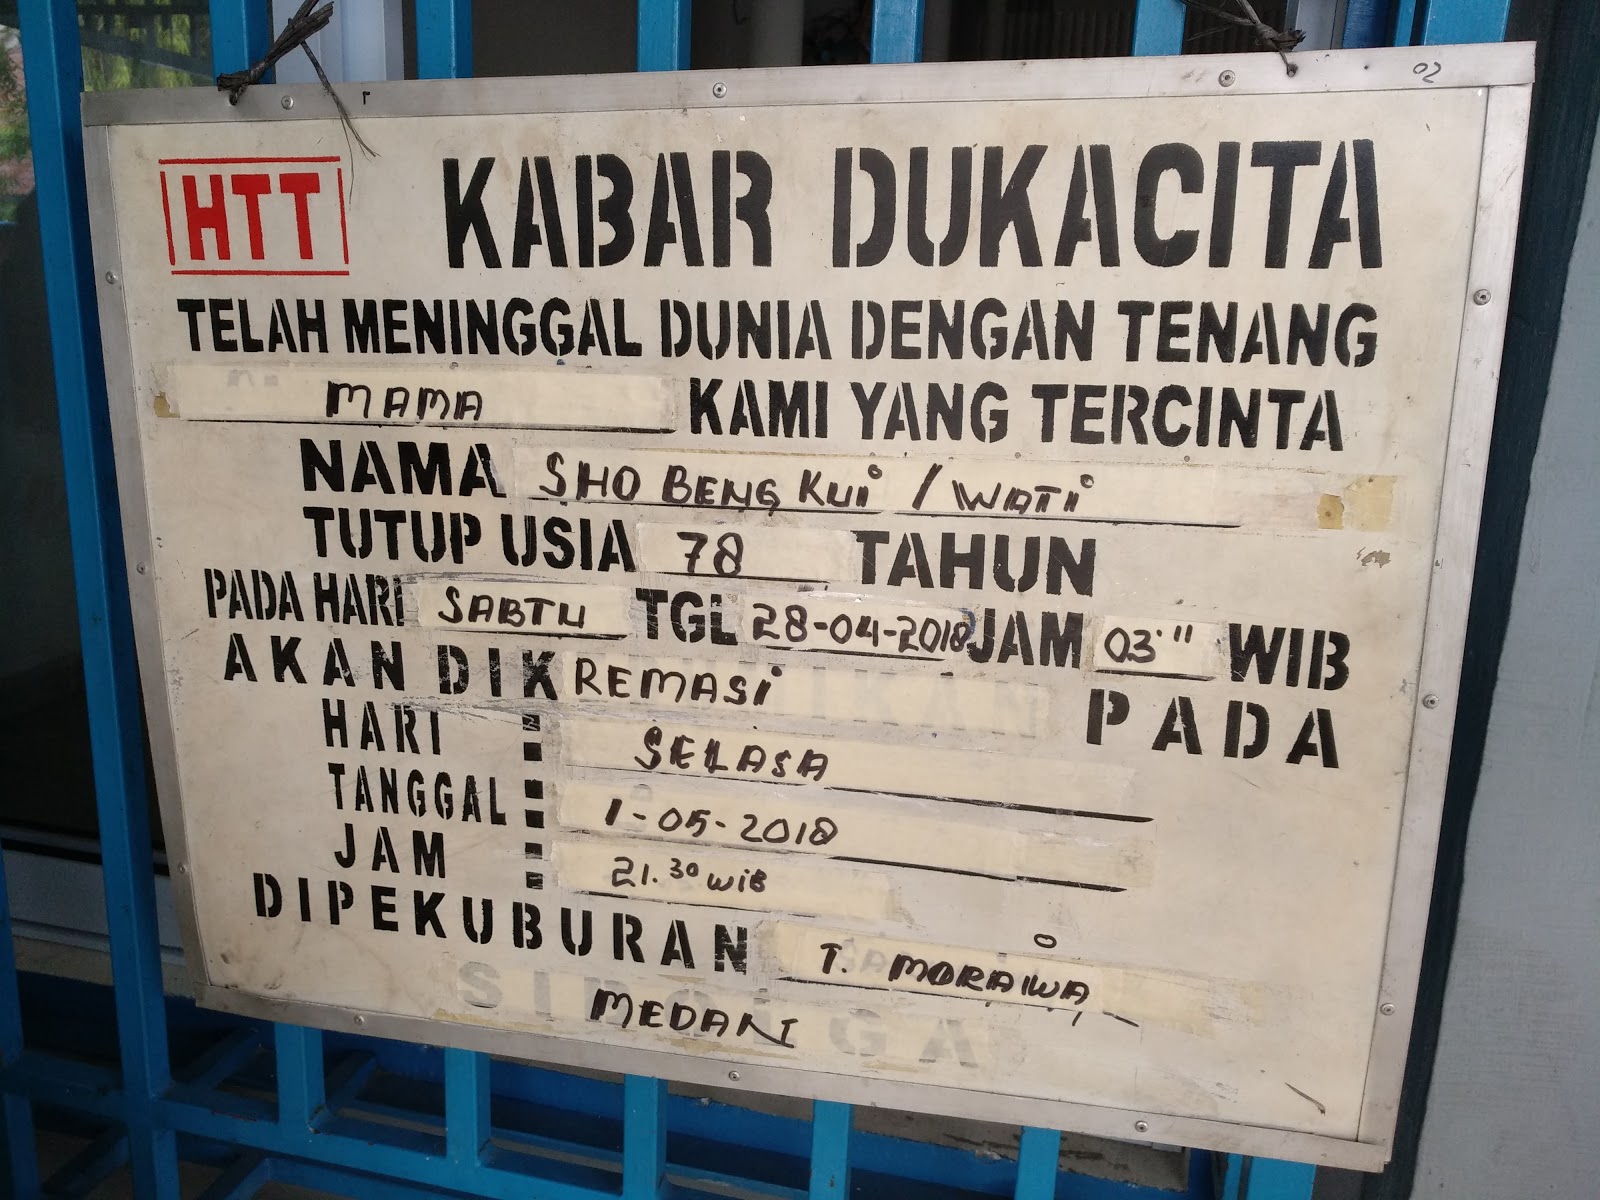 02
HTT KABAR DUKACITA
TELAH MENINGGAL DUNIA DENGAN TENANG
MAMA KAMI YANG TERCINTA
NAMA SHO BENG KUI / WATI
TUTUP USIA 78 TAHUN
PADA HARI SABTU TGL 28-04-2018 JAM 03'" WIB
AKAN DIKREMASI PADA
HARI : SELASA
TANGGAL : 1-05-2018
JAM : 21.30 WIB
DIPEKUBURAN T. MORAWA
MEDAN